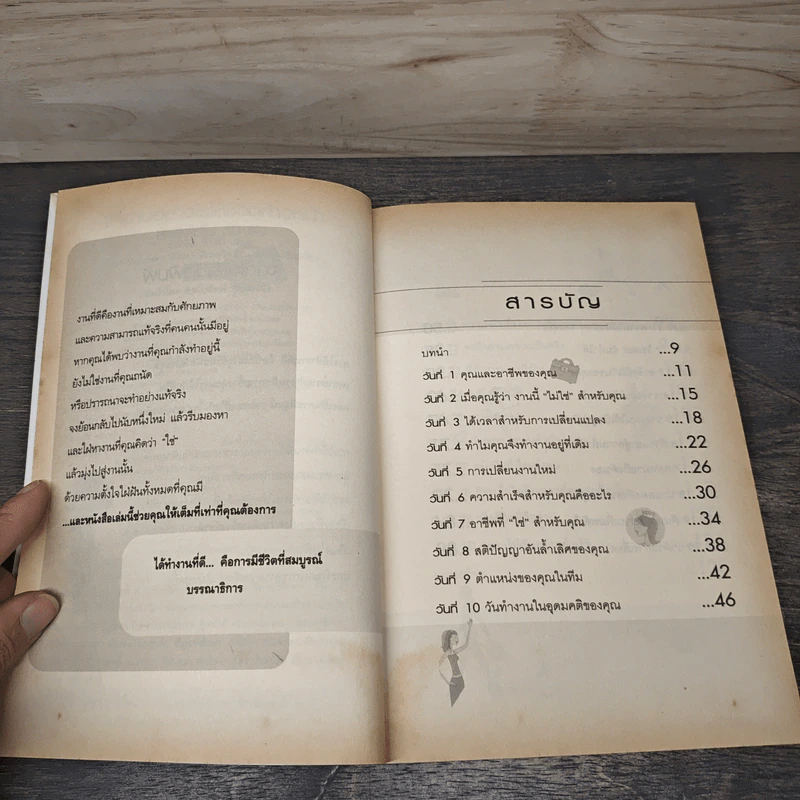 งานที่ดีคืองานที่เหมาะสมกับศักยภาพ
และความสามารถแท้จริงที่คนคนนั้นมีอยู่
หากคุณได้พบว่างานที่คุณกำลังทำอยู่นี้
ยังไม่ใช่งานที่คุณถนัด
หรือปรารถนาจะทำอย่างแท้จริง
จงย้อนกลับไปนับหนึ่งใหม่ แล้วรีบมองหา
และใฝ่หางานที่คุณคิดว่า "ใช่"
แล้วมุ่งไปสู่งานนั้น
ด้วยความตั้งใจใฝ่ฝันทั้งหมดที่คุณมี
...และหนังสือเล่มนี้ช่วยคุณให้เต็มที่เท่าที่คุณต้องการ
ได้ทำงานที่ดี... คือการมีชีวิตที่สมบูรณ์
บรรณาธิการ
สารบัญ
บทนำ ...9
วันที่ 1 คุณและอาชีพของคุณ ...11
วันที่ 2 เมื่อคุณรู้ว่า งานนี้ "ไม่ใช่" สำหรับคุณ ...15
วันที่ 3 ได้เวลาสำหรับการเปลี่ยนแปลง ...18
วันที่ 4 ทำไมคุณจึงทำงานอยู่ที่เดิม ...22
วันที่ 5 การเปลี่ยนงานใหม่ ...26
วันที่ 6 ความสำเร็จสำหรับคุณคืออะไร ...30
วันที่ 7 อาชีพที่ "ใช่" สำหรับคุณ ...34
วันที่ 8 สติปัญญาอันล้ำเลิศของคุณ ...38
วันที่ 9 ตำแหน่งของคุณในทีม ...42
วันที่ 10 วันทำงานในอุดมคติของคุณ ...46